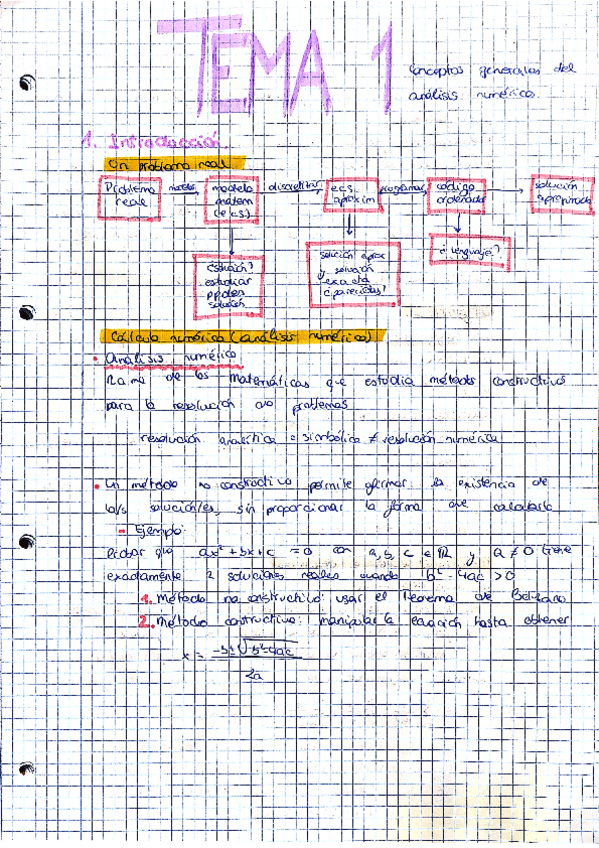 TEMA 1
Conceptos generales del
análisis numérico.
1. Introducción
Un problema real
Problema
real
modelo
modelo
matem
(ecs)
discretizar
ecs.
aproxim
programar
código
ordenador
solución
apropiada
¿solución?
estudiar
solución
solución aprox
y solución
exacta
¿parecidas?
¿lenguaje?
Cálculo numérico (análisis numérico)
• Análisis numérico
Rama de las matemáticas que estudia métodos constructivos
para la resolución de problemas
resolución analítica o simbólica ≠ resolución numérica
• Un método no constructivo permite afirmar la existencia de
la/s solución/es, sin proporcionar la forma de calcularla
- Ejemplo:
Probar que ax² + bx + c = 0 con a, b, c ∈ ℝ y a ≠ 0 tiene
exactamente 2 soluciones reales cuando b² - 4ac > 0
1. Método no constructivo: usar el Teorema de Bolzano
2. Método constructivo: manipular la ecuación hasta obtener
x = -b ± √b²-4ac
2a